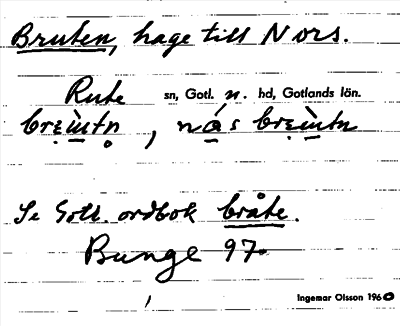 Bruten, hage till Nors.
Rute sn, Gotl. n. hd, Gotlands län.
Se Gotl. ordbok bråte.
Bunge 97
Ingemar Olsson 1960